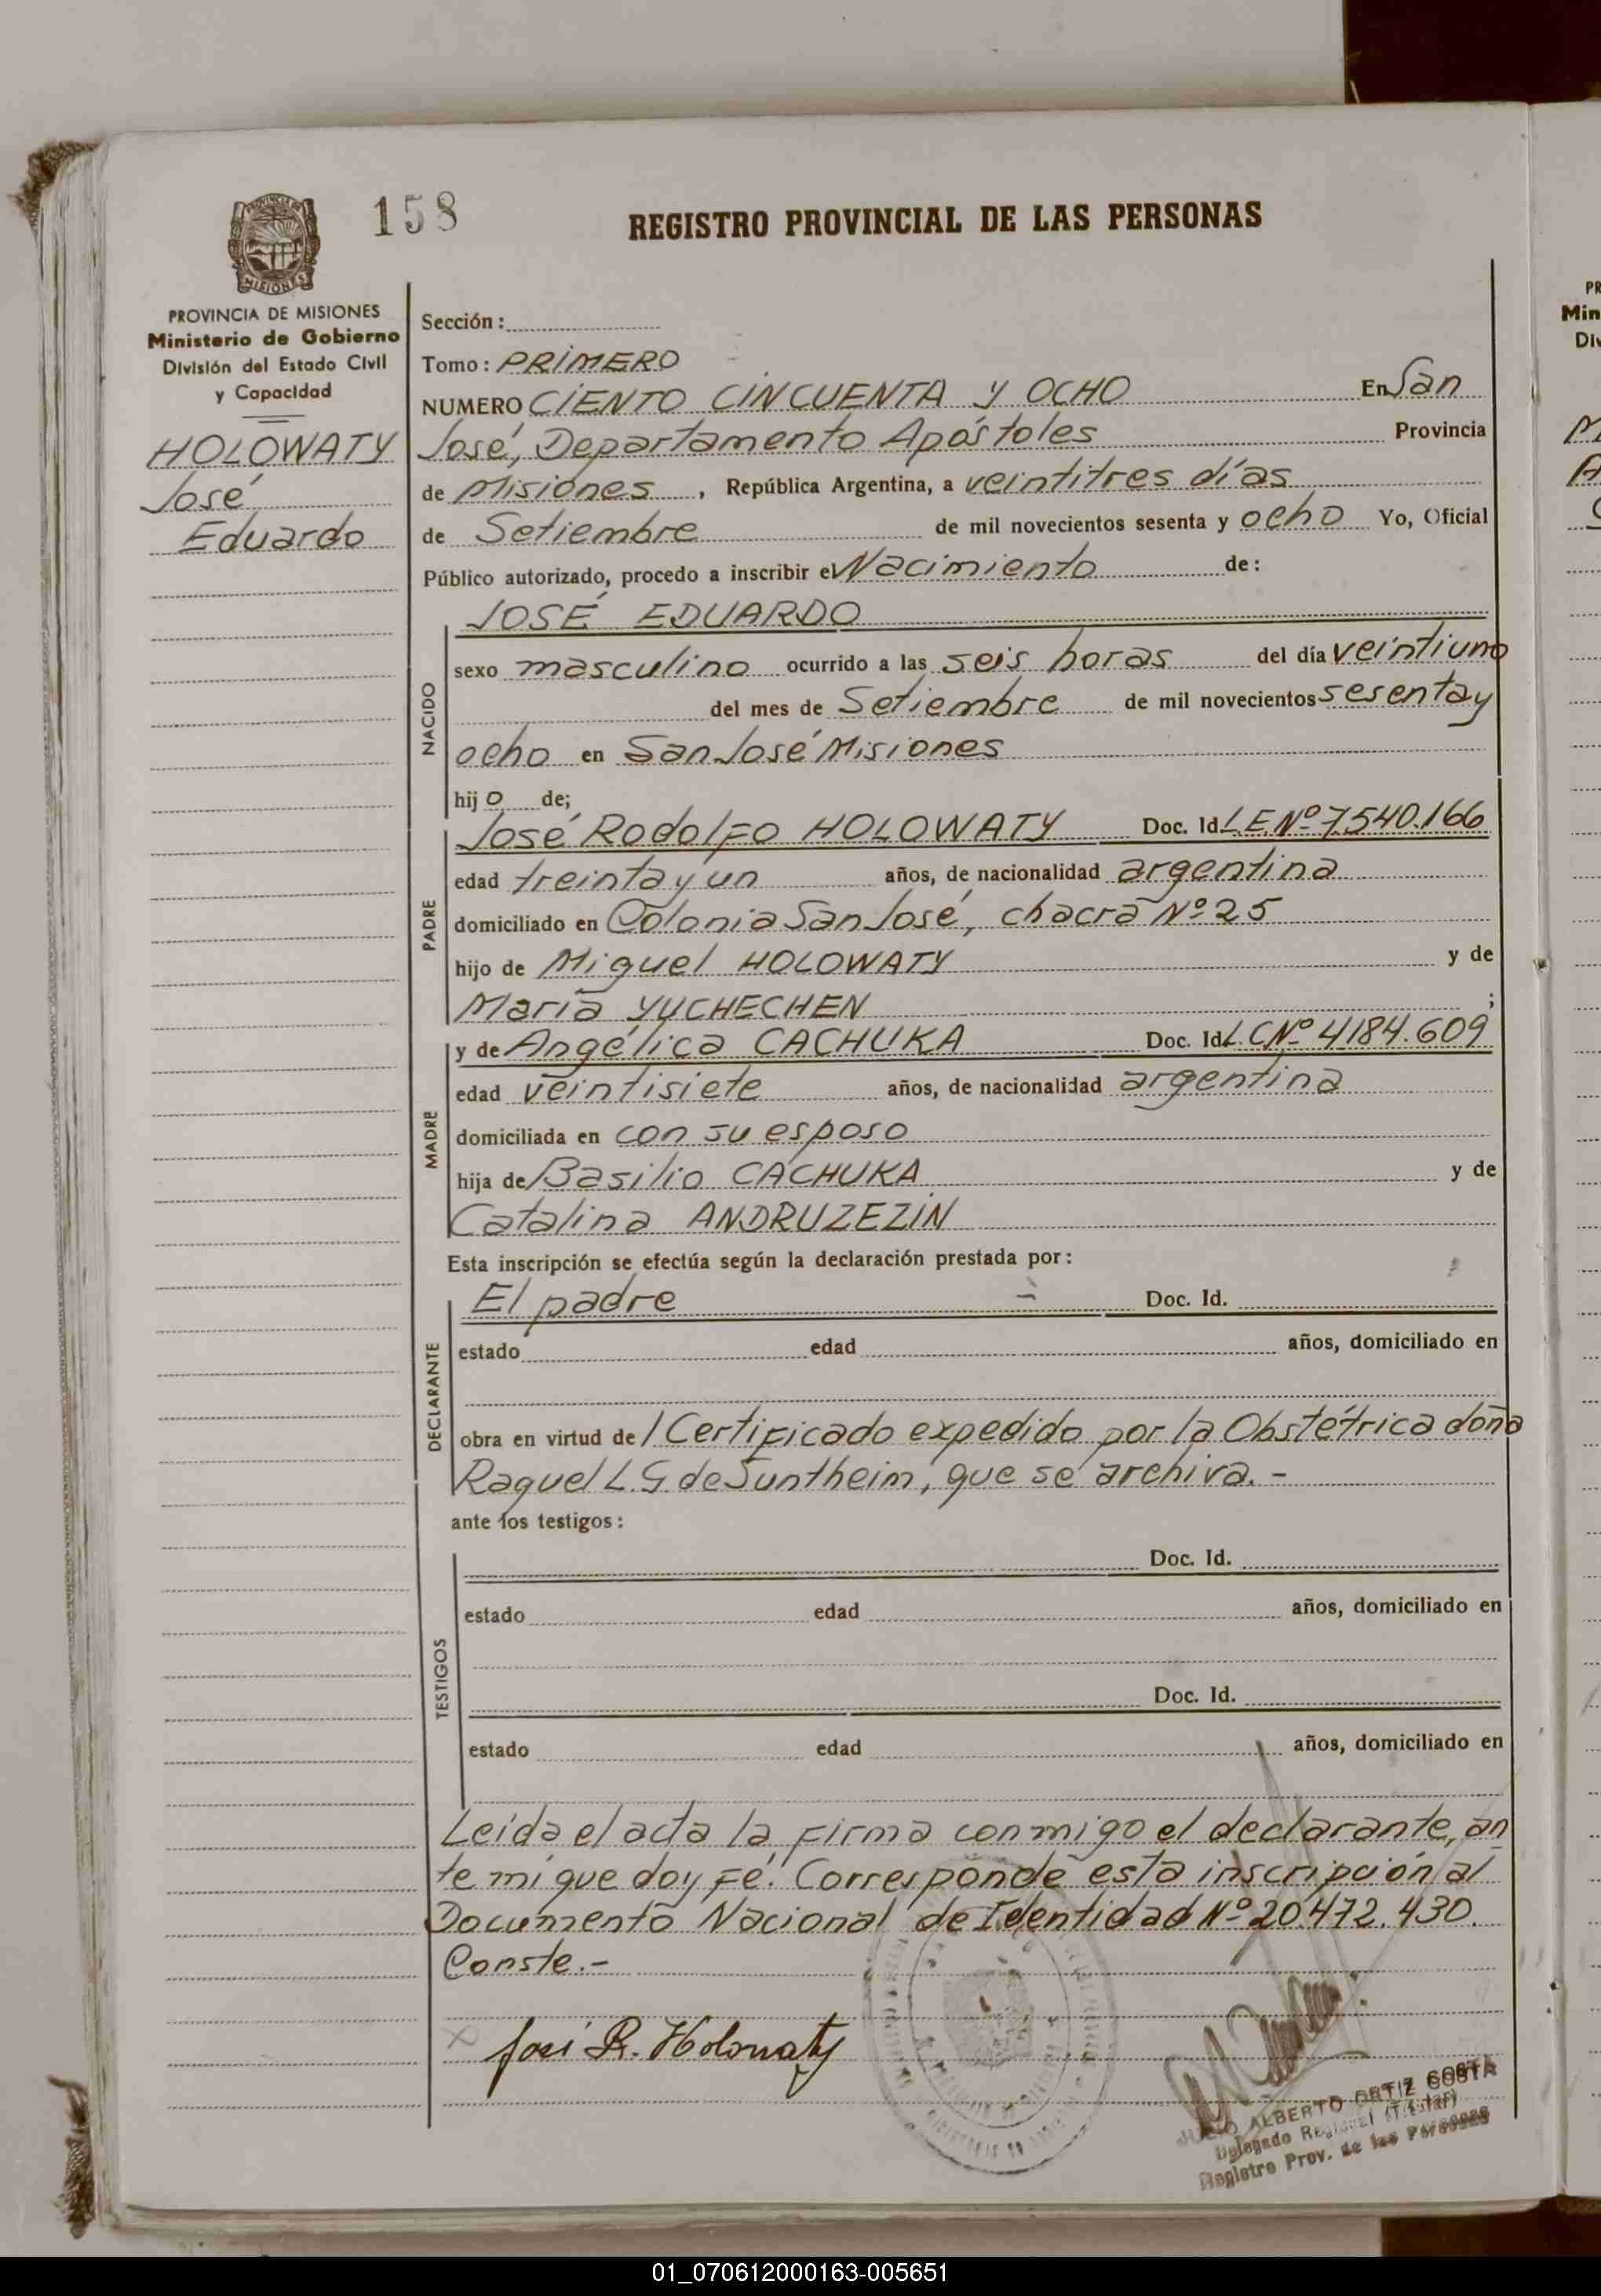 158
REGISTRO PROVINCIAL DE LAS PERSONAS
MISIONES
PROVINCIA DE MISIONES
Ministerio de Gobierno
División del Estado Civil
y Capacidad
HOLOWATY
José
Eduardo
Sección:
Tomo: PRIMERO
NUMERO CIENTO CINCUENTA Y OCHO En San
José, Departamento Apóstoles Provincia
de Misiones, República Argentina, a veintitres días
de Setiembre de mil novecientos sesenta y ocho Yo, Oficial
Público autorizado, procedo a inscribir el Nacimiento de:
NACIDO
JOSÉ EDUARDO
sexo masculino ocurrido a las seis horas del día veintiuno
del mes de Setiembre de mil novecientos sesenta y
ocho en San José Misiones
hijo de;
PADRE
José Rodolfo HOLOWATY Doc. Id L.E.Nº 7.540.166
edad treinta y un años, de nacionalidad argentina
domiciliado en Colonia San José, chacra Nº 25
hijo de Miguel HOLOWATY y de
María YUCHECHEN ;
MADRE
y de Angélica CACHUKA Doc. Id L.C.Nº 4184.609
edad veintisiete años, de nacionalidad argentina
domiciliada en con su esposo
hija de Basilio CACHUKA y de
Catalina ANDRUZEZIN
Esta inscripción se efectúa según la declaración prestada por:
DECLARANTE
El padre Doc. Id.
estado edad años, domiciliado en
obra en virtud de 1 Certificado expedido por la Obstétrica doña
Raquel L. G. de Suntheim, que se archiva.-
ante los testigos:
TESTIGOS
Doc. Id.
estado edad años, domiciliado en
Doc. Id.
estado edad años, domiciliado en
Leída el acta la firma conmigo el declarante, an
te mí que doy fé. Corresponde esta inscripción al
Documento Nacional de Identidad Nº 20.472.430.
Conste.-
José R. Holowaty
JULIO ALBERTO ORTIZ COSTA
Delegado Regional (Titular)
Registro Prov. de las Personas
PR
Min
Div
01_070612000163-005651